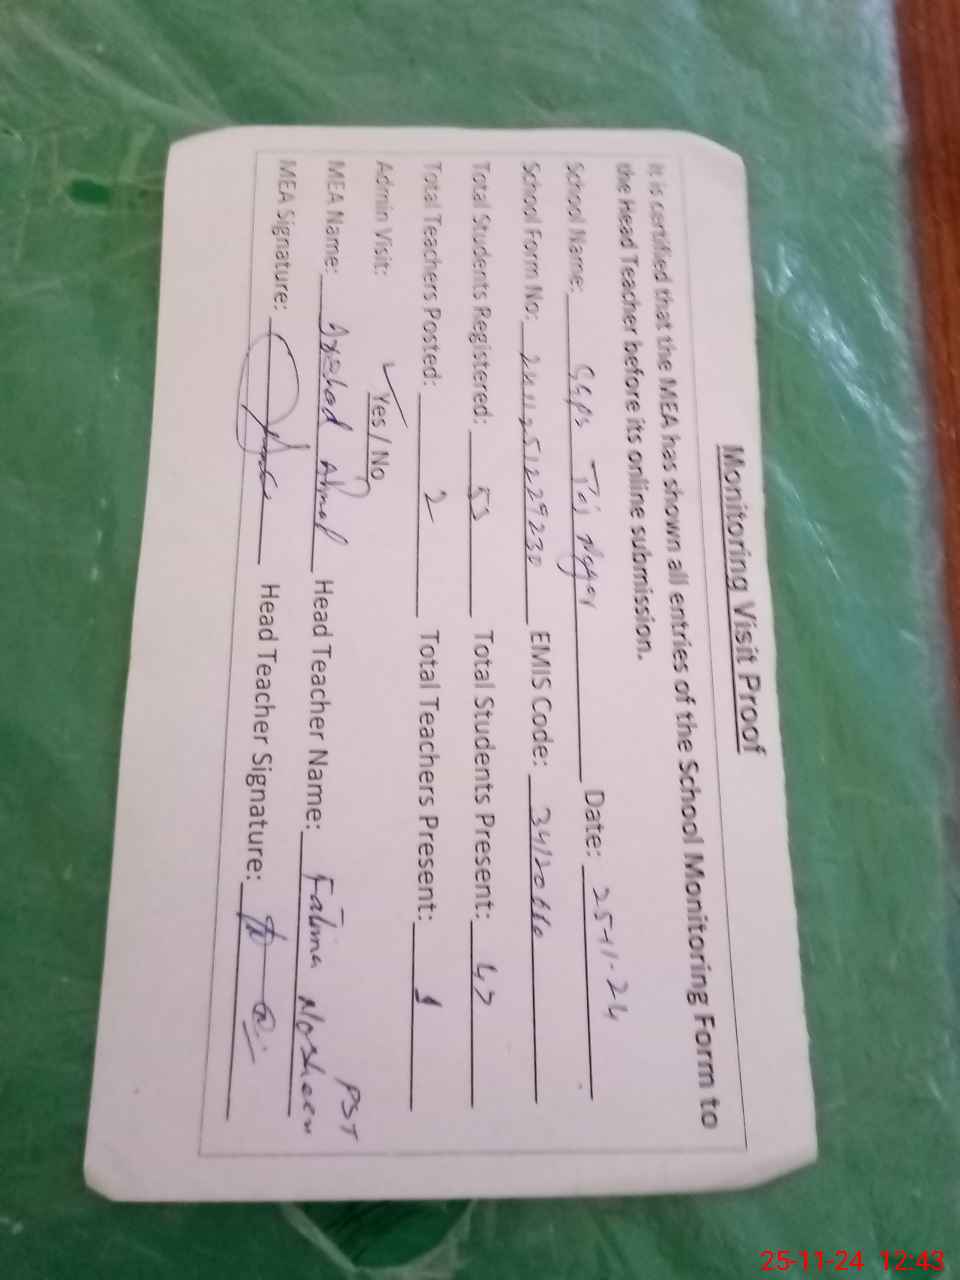 Monitoring Visit Proof
It is certified that the MEA has shown all entries of the School Monitoring Form to
the Head Teacher before its online submission.
School Name: GGPS Taj Nagar Date: 25-11-24
School Form No: EMIS Code:
Total Students Registered: 53 Total Students Present: 47
Total Teachers Posted: 2 Total Teachers Present: 1
Admin Visit: Yes / No
MEA Name: Head Teacher Name: Fatima Nosheen PST
MEA Signature: Head Teacher Signature:
25-11-24 12:43